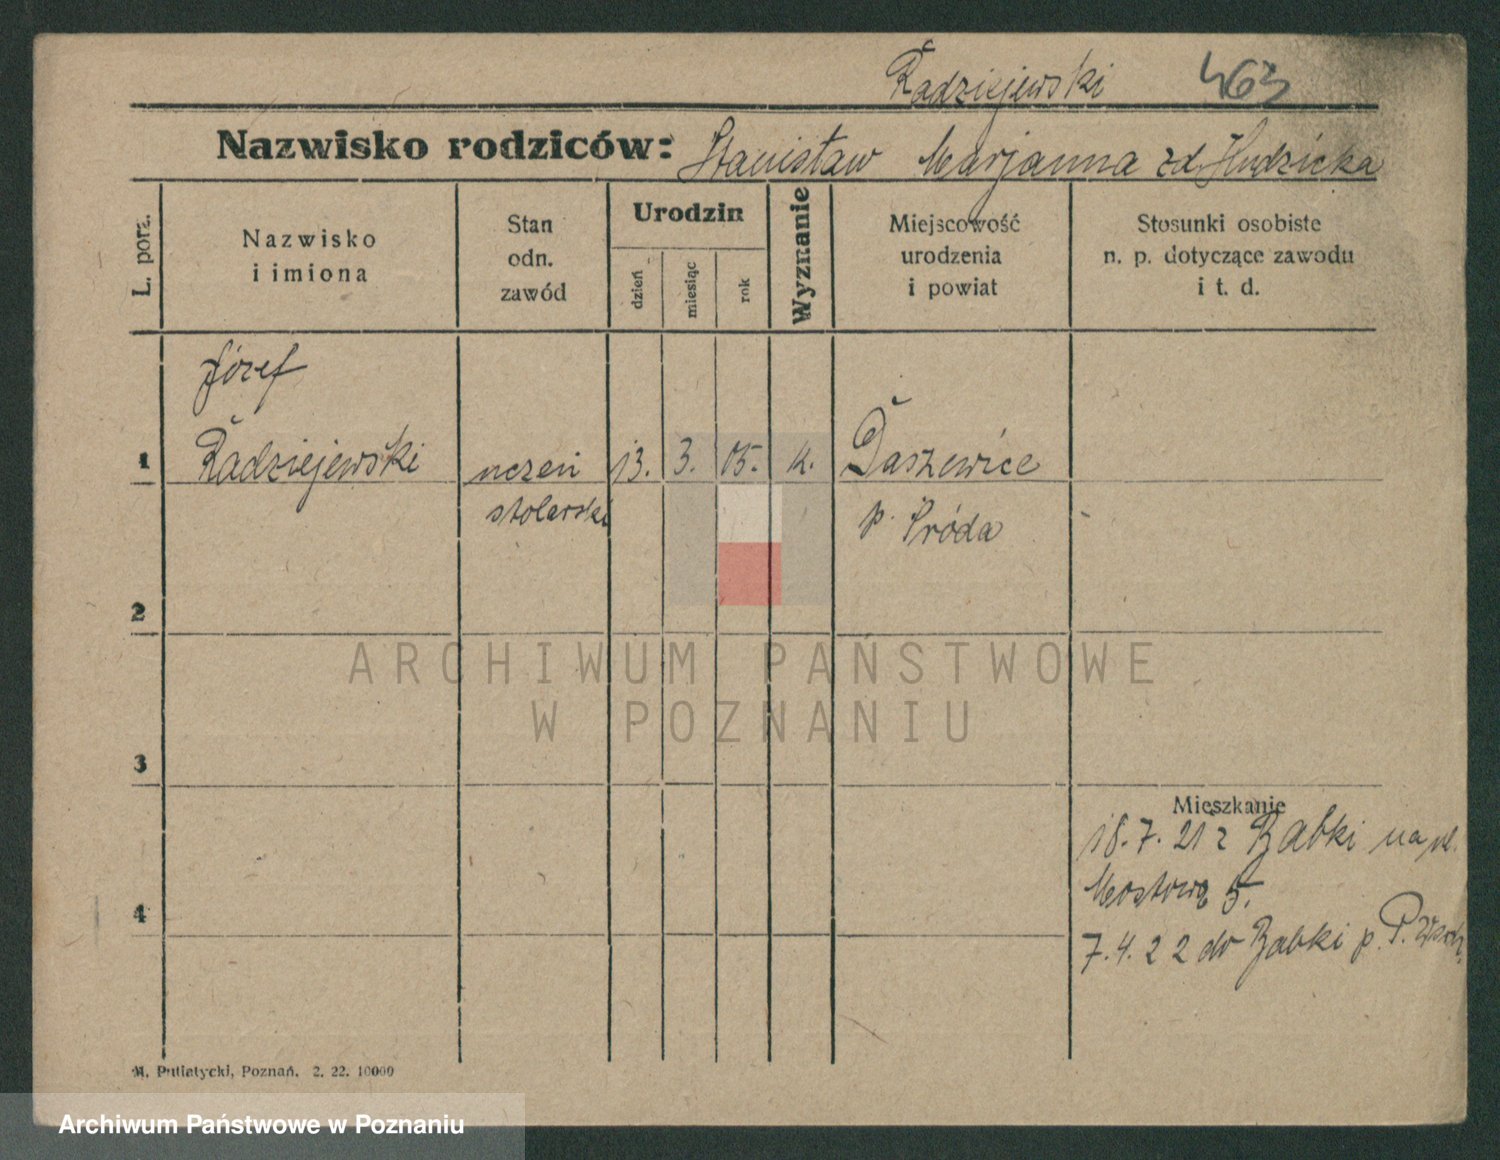 Radziejewski 463
Nazwisko rodziców: Stanisław Marjanna zd. Hudzicka
L. porz.
Nazwisko
i imiona
Stan
odn.
zawód
Urodzin
dzień
miesiąc
rok
Wyznanie
Miejscowość
urodzenia
i powiat
Stosunki osobiste
n. p. dotyczące zawodu
i t. d.
Józef
1 Radziejewski uczeń 13. 3. 05. k. Daszewice
stolarski p. Śróda
2
ARCHIWUM PAŃSTWOWE
W POZNANIU
3
Mieszkanie
18.7.21 z Babki na ul.
Mostową 5.
4
7.4.22 do Babki p. P. Wsch.
M. Putiatycki, Poznań. 2. 22. 10000
Archiwum Państwowe w Poznaniu